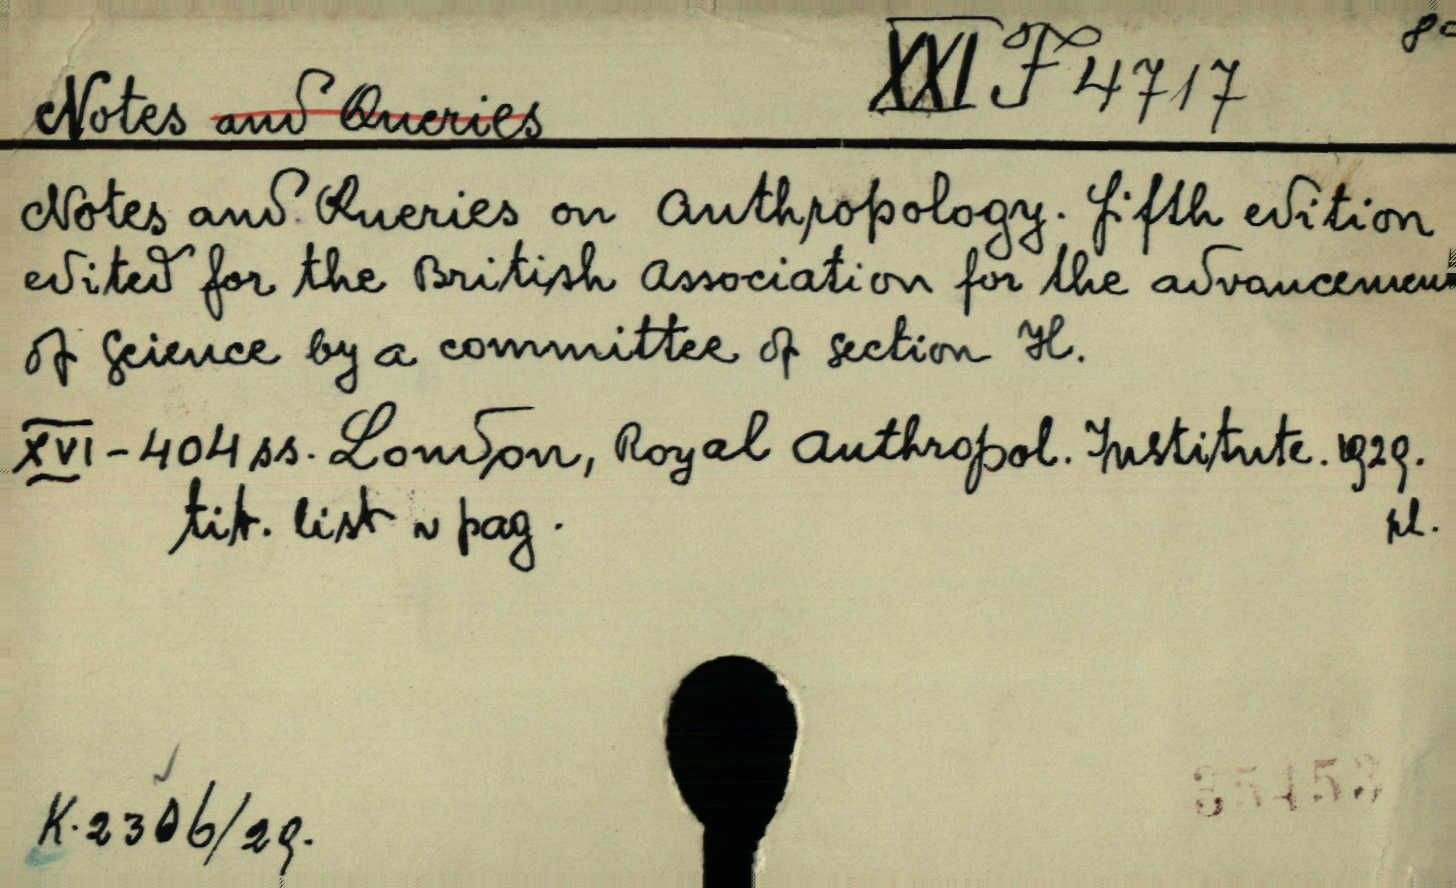 XXI F 4717
8°
Notes and Queries
Notes and Queries on Anthropology. Fifth edition
edited for the British Association for the advancement
of Science by a committee of section H.
XVI - 404 ss. London, Royal Anthropol. Institute. 1929.
tit. list v pag. pl.
35453